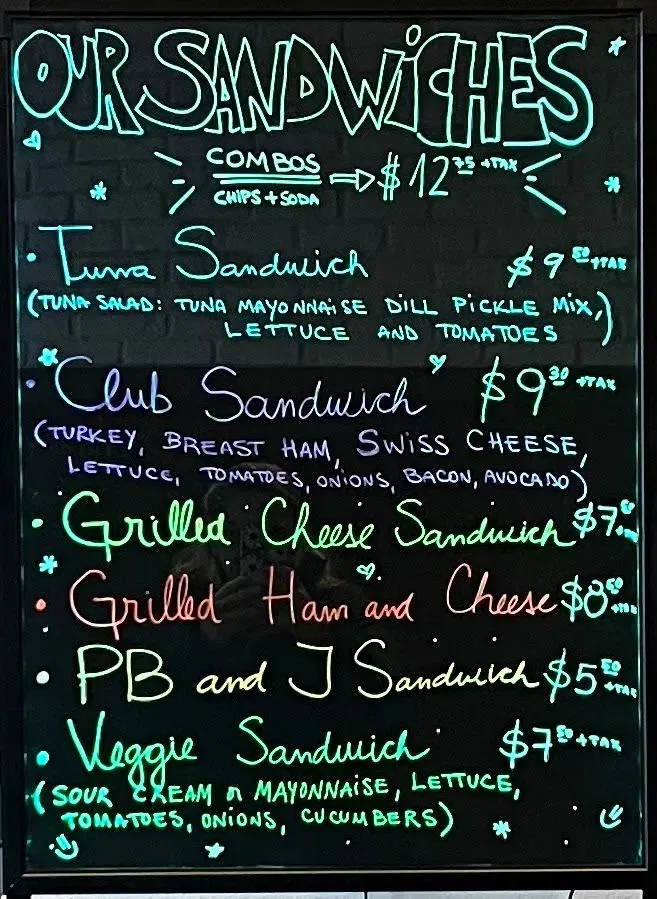 OUR SANDWICHES
COMBOS
CHIPS + SODA
$12.75 +TAX
• Tuna Sandwich $9.50 +TAX
(TUNA SALAD: TUNA MAYONNAISE DILL PICKLE MIX,
LETTUCE AND TOMATOES)
• Club Sandwich $9.30 +TAX
(TURKEY, BREAST HAM, SWISS CHEESE,
LETTUCE, TOMATOES, ONIONS, BACON, AVOCADO)
• Grilled Cheese Sandwich $7
• Grilled Ham and Cheese $8.50 +TAX
• PB and J Sandwich $5.50 +TAX
• Veggie Sandwich $7.50 +TAX
(SOUR CREAM or MAYONNAISE, LETTUCE,
TOMATOES, ONIONS, CUCUMBERS)